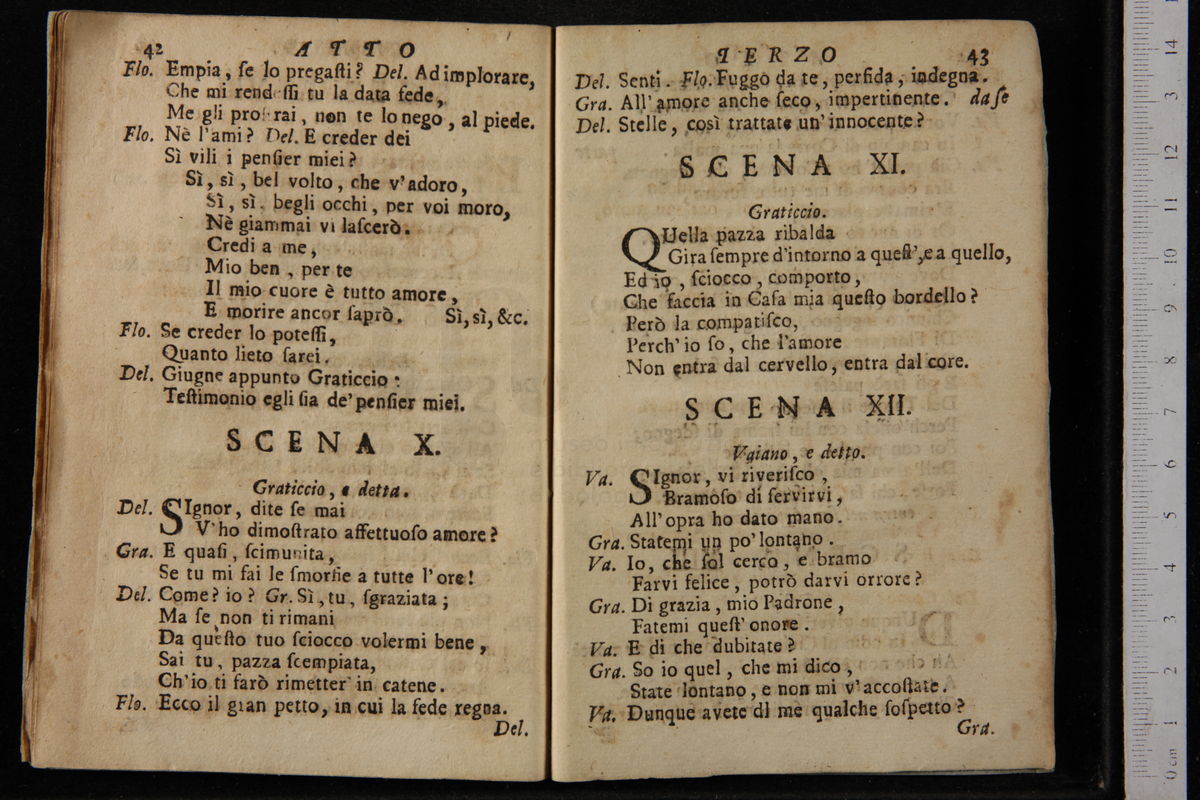 42 ATTO
Flo. Empia, ſe lo pregaſti? Del. Ad implorare,
Che mi rendeſſi tu la data fede,
Me gli proſtrai, non te lo nego, al piede.
Flo. Nè l'ami? Del. E creder dei
Sì vili i penſier miei?
Sì, sì, bel volto, che v'adoro,
Sì, sì, begli occhi, per voi moro,
Nè giammai vi laſcerò.
Credi a me,
Mio ben, per te
Il mio cuore è tutto amore,
E morire ancor ſaprò. Sì, sì, &c.
Flo. Se creder lo poteſſi,
Quanto lieto ſarei.
Del. Giugne appunto Graticcio:
Teſtimonio egli ſia de' penſier miei.
SCENA X.
Graticcio, e detta.
Del. SIgnor, dite ſe mai
V'ho dimoſtrato affettuoſo amore?
Gra. E quaſi, ſcimunita,
Se tu mi fai le ſmorfie a tutte l'ore!
Del. Come? io? Gr. Sì, tu, ſgraziata;
Ma ſe non ti rimani
Da queſto tuo ſciocco volermi bene,
Sai tu, pazza ſcempiata,
Ch'io ti farò rimetter in catene.
Flo. Ecco il gran petto, in cui la fede regna.
Del.
TERZO 43
Del. Senti. Flo. Fuggo da te, perfida, indegna.
Gra. All'amore anche ſeco, impertinente. da ſe
Del. Stelle, così trattate un'innocente?
SCENA XI.
Graticcio.
QUella pazza ribalda
Gira ſempre d'intorno a queſt', e a quello,
Ed io, ſciocco, comporto,
Che faccia in Caſa mia queſto bordello?
Però la compatiſco,
Perch'io ſo, che l'amore
Non entra dal cervello, entra dal core.
SCENA XII.
Vaiano, e detto.
Va. SIgnor, vi riveriſco,
Bramoſo di ſervirvi,
All'opra ho dato mano.
Gra. Statemi un po' lontano.
Va. Io, che ſol cerco, e bramo
Farvi felice, potrò darvi orrore?
Gra. Di grazia, mio Padrone,
Fatemi queſt'onore.
Va. E di che dubitate?
Gra. So io quel, che mi dico,
State lontano, e non mi v'accoſtate.
Va. Dunque avete di me qualche ſoſpetto?
Gra.
0 cm 1 2 3 4 5 6 7 8 9 10 11 12 13 14